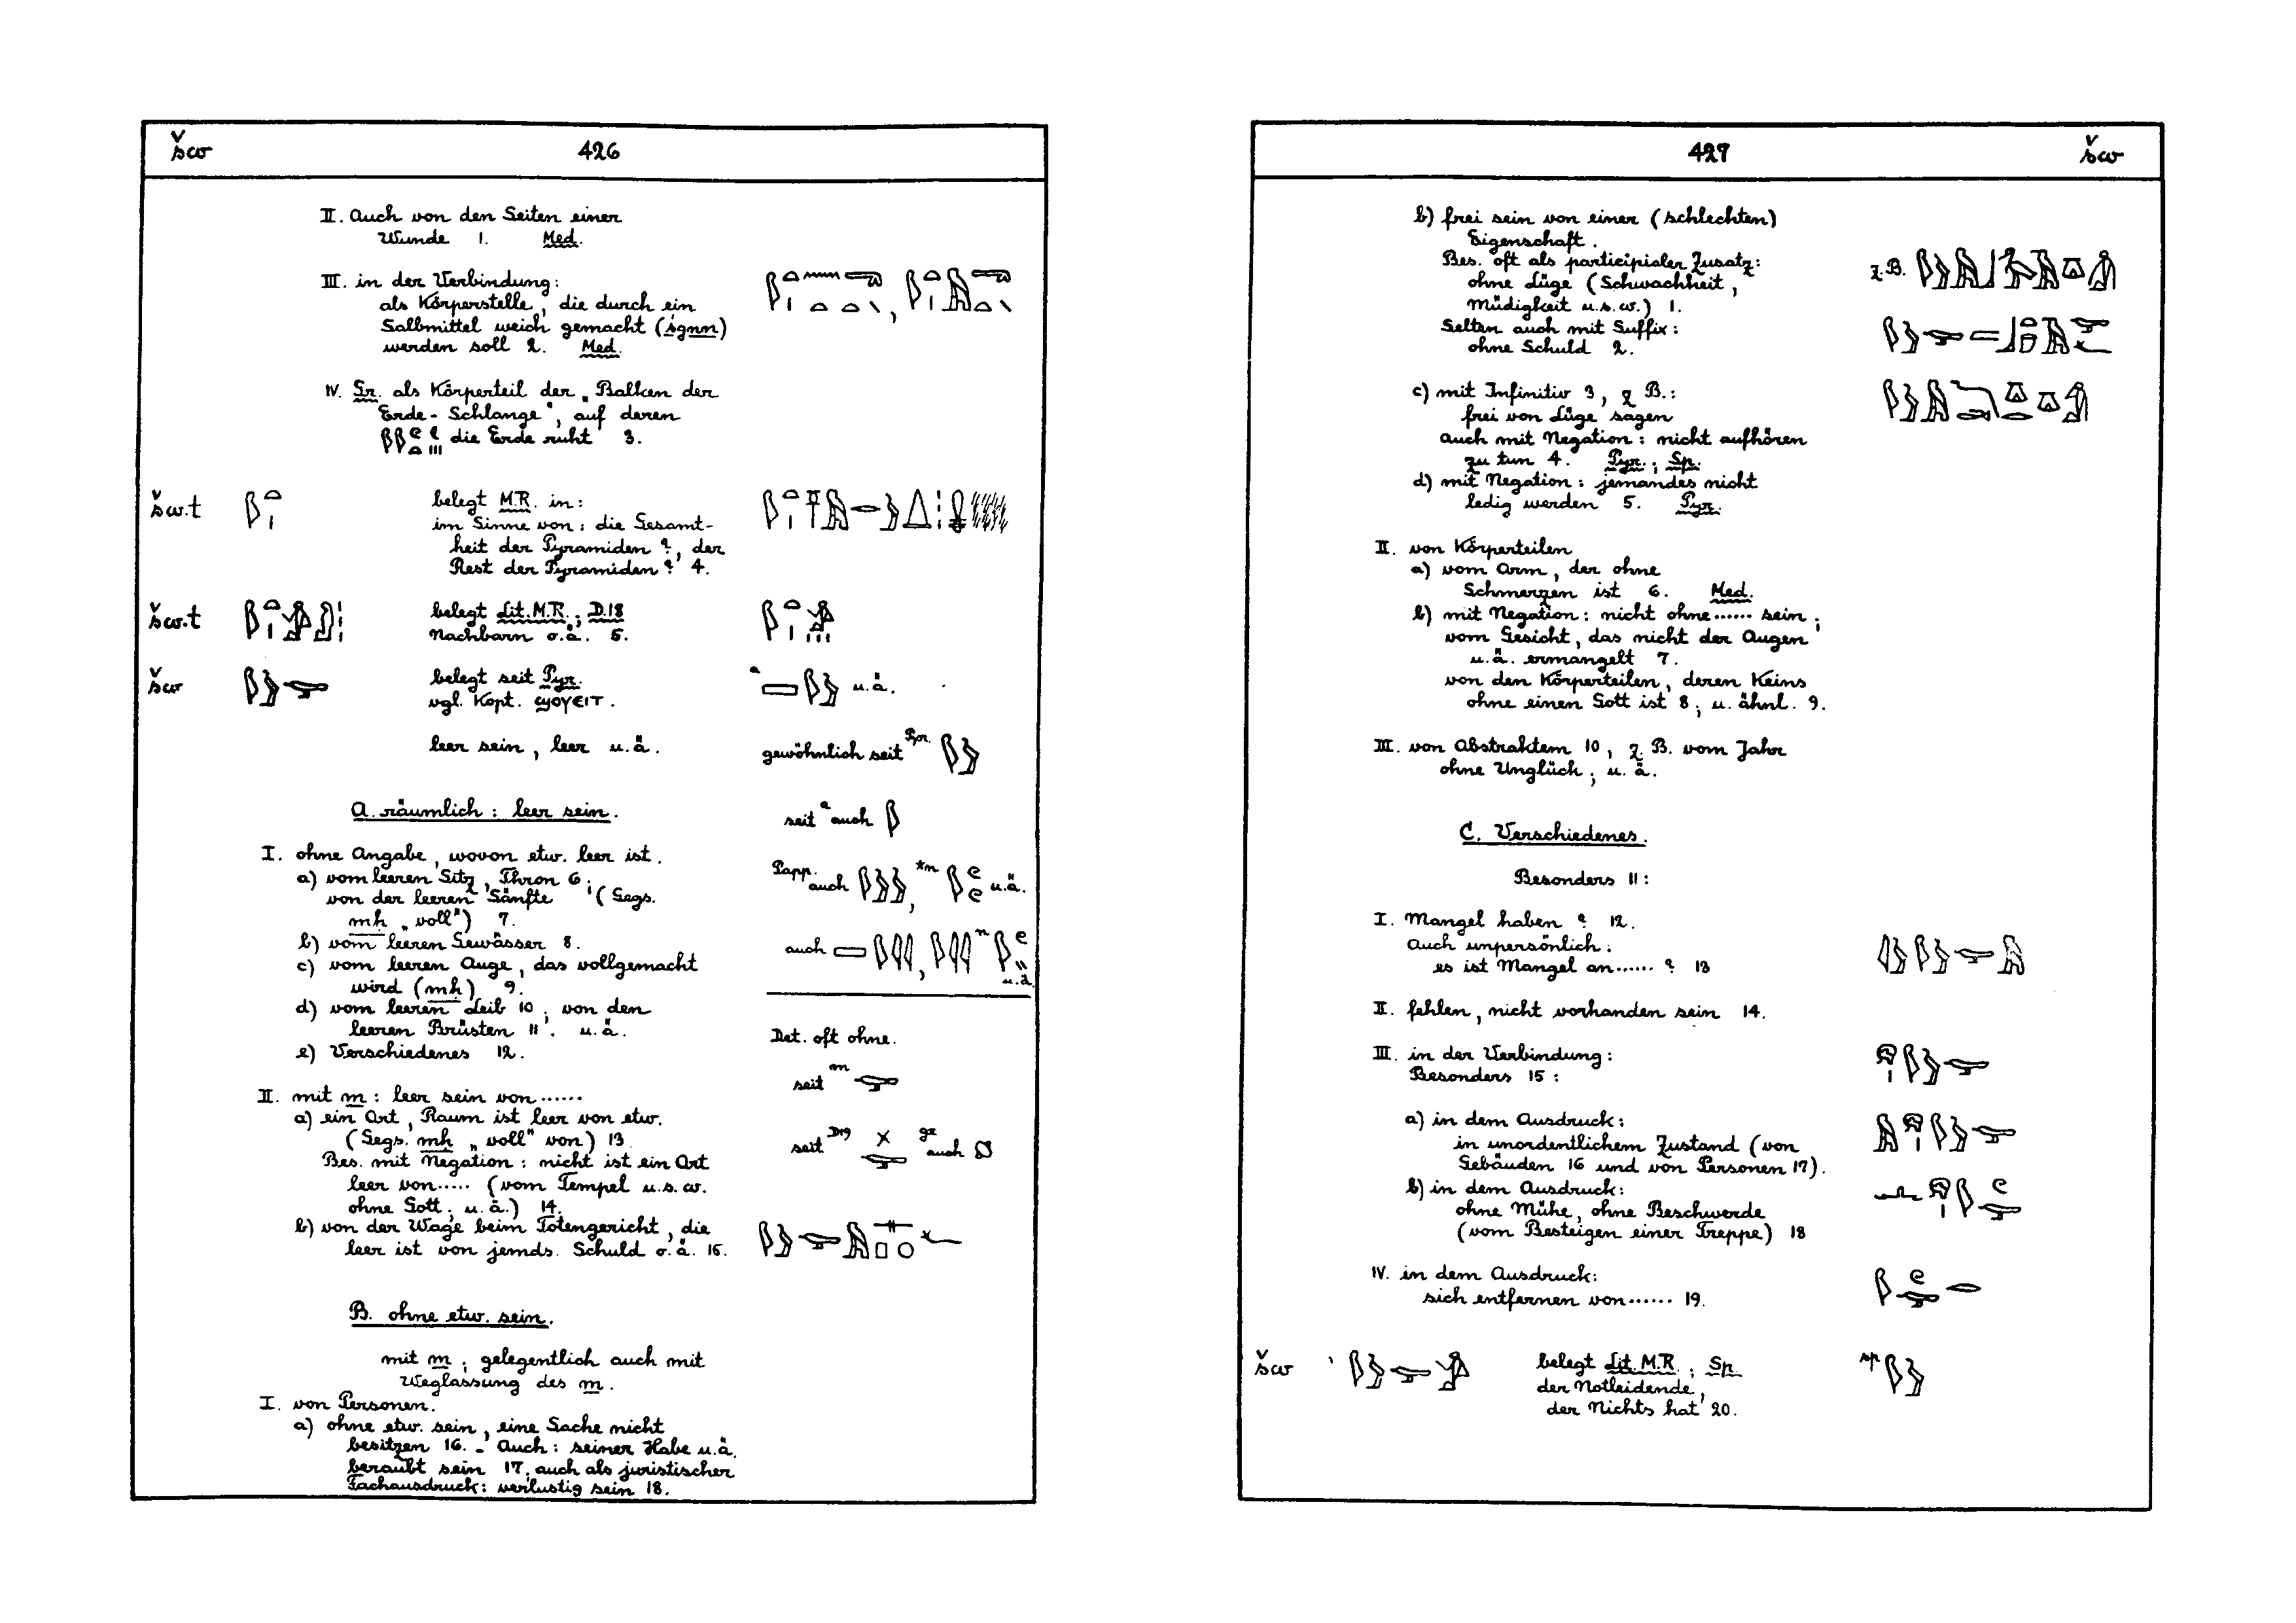 šw 426
II. Auch von den Seiten einer
Wunde 1. Med.
III. in der Verbindung:
als Körperstelle, die durch ein
Salbmittel weich gemacht (sgnn)
werden soll 2. Med.
IV. Gr. als Körperteil der „Balken der
Erde-Schlange", auf deren
die Erde ruht 3.
šw.t belegt M.R. in:
im Sinne von: die Gesamt-
heit der Pyramiden?, der
Rest der Pyramiden? 4.
šw.t belegt Lit. M.R.; D.18
Nachbarn o.ä. 5.
šw belegt seit Pyr. a u.ä.
vgl. Kopt. ϣⲟⲩⲉⲓⲧ.
leer sein, leer u.ä. gewöhnlich seit Pyr.
A. räumlich: leer sein.
seit a auch
I. ohne Angabe, wovon etw. leer ist.
a) vom leeren Sitz, Thron 6; Papp. auch , *m u.ä.
von der leeren Sänfte (Gegs.
mḥ „voll") 7.
b) vom leeren Gewässer 8. auch , n u.ä.
c) vom leeren Auge, das vollgemacht
wird (mḥ) 9.
d) vom leeren Leib 10, von den
leeren Brüsten 11. u.ä.
e) Verschiedenes 12.
Det. oft ohne.
seit m
II. mit m: leer sein von ......
a) ein Ort, Raum ist leer von etw.
(Gegs. mḥ „voll" von) 13. seit D19 gr auch
Bes. mit Negation: nicht ist ein Ort
leer von ..... (vom Tempel u.s.w.
ohne Gott; u.ä.) 14.
b) von der Wage beim Totengericht, die
leer ist von jemds. Schuld o.ä. 15.
B. ohne etw. sein.
mit m; gelegentlich auch mit
Weglassung des m.
I. von Personen.
a) ohne etw. sein, eine Sache nicht
besitzen 16. – Auch: seiner Habe u.ä.
beraubt sein 17, auch als juristischer
Fachausdruck: verlustig sein 18.
427 šw
b) frei sein von einer (schlechten)
Eigenschaft.
Bes. oft als participialer Zusatz: z.B.
ohne Lüge (Schwachheit,
Müdigkeit u.s.w.) 1.
Selten auch mit Suffix:
ohne Schuld 2.
c) mit Infinitiv 3, z.B.:
frei von Lüge sagen
Auch mit Negation: nicht aufhören
zu tun 4. Pyr.; Sp.
d) mit Negation: jemandes nicht
ledig werden 5. Pyr.
II. von Körperteilen
a) vom Arm, der ohne
Schmerzen ist 6. Med.
b) mit Negation: nicht ohne ...... sein;
vom Gesicht, das nicht der Augen
u.ä. ermangelt 7.
von den Körperteilen, deren Keins
ohne einen Gott ist 8; u. ähnl. 9.
III. von Abstraktem 10, z.B. vom Jahr
ohne Unglück; u.ä.
C. Verschiedenes.
Besonders 11:
I. Mangel haben? 12.
Auch unpersönlich:
es ist Mangel an ...... ? 13
II. fehlen, nicht vorhanden sein 14.
III. in der Verbindung:
Besonders 15:
a) in dem Ausdruck:
in unordentlichem Zustand (von
Gebäuden 16 und von Personen 17).
b) in dem Ausdruck:
ohne Mühe, ohne Beschwerde
(vom Besteigen einer Treppe) 18
IV. in dem Ausdruck:
sich entfernen von ...... 19.
šw belegt Lit. M.R.; Sp. sp
der Notleidende,
der Nichts hat 20.